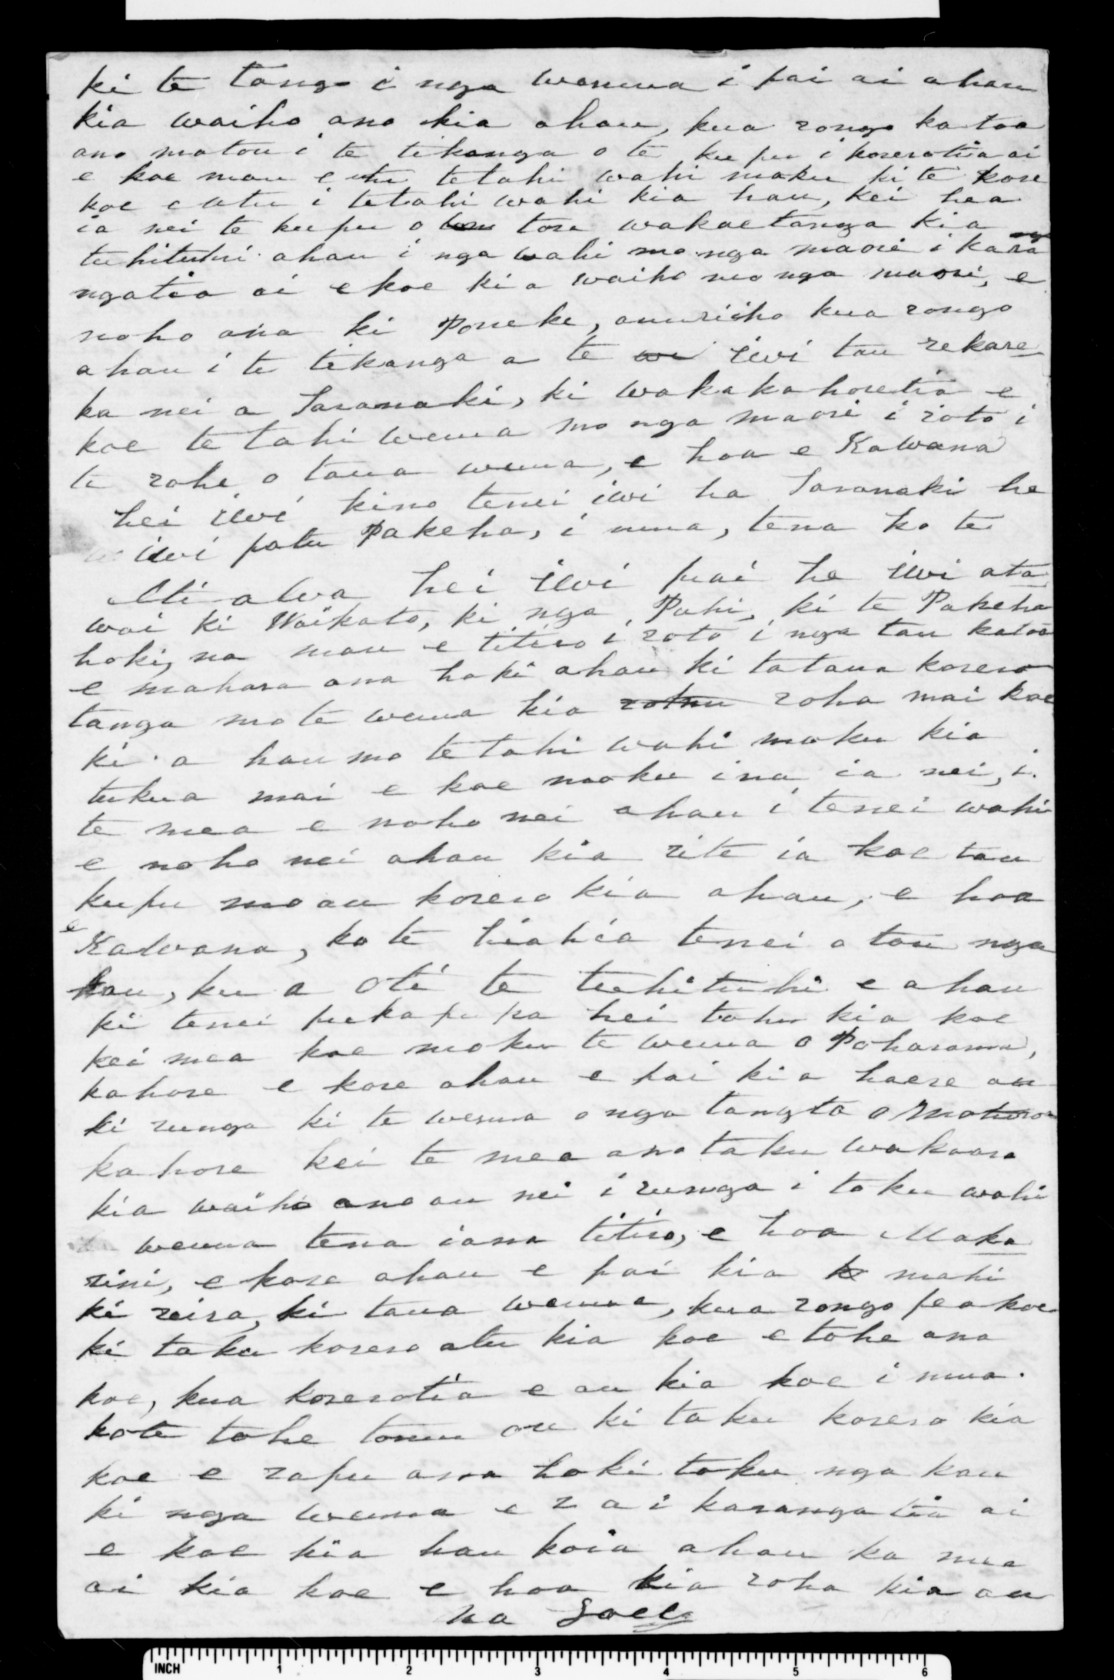 ki te tango i nga wenua i pai ai ahau
kia waiho ano kia ahau, kua rongo katoa
ano matou i te tikanga o te kupu i korerotia ai
e koe mau e utu tetahi wahi maku ki te kore
koe e utu i tetahi wahi kia hau, kei hea
ia nei te kupu o tou wakaetanga kia
tuhituhi ahau i nga wahi mo nga maori i kara
ngatia ai e koe kia waiho mo nga maori, e
noho ana ki Poneke, amuriiho kua rongo
ahau i te tikanga a te iwi tau rekare
ka nei a Taranaki, ki wakakahoretia e
koe tetahi wenua mo nga maori i roto i
te rohe o taua wenua, e hoa e Kawana
hei iwi kino tenei iwi ha Taranaki he
iwi patu Pakeha, i mua, tena ko te
Ati awa hei iwi pai he iwi ata
wai ki Waikato, ki nga Puhi, ki te Pakeha
hoki, na mau e titiro i roto i nga tau katoa
e mahara ana hoki ahau ki tataua korero
tanga mo te wenua kia roha mai koe
ki a hau mo tetahi wahi maku kia
tukua mai e koe maoku ina ia nei, i
te mea e noho nei ahau i tenei wahi
e noho nei ahau kia rite ia koe tau
kupu mo au korero kia ahau, e hoa
e Kawana, ko te hiahia tenei o tou nga
kau, ku a oti te tuhituhi e ahau
ki tenei pukapuka hei tohu kia koe
kei mea koe moku te wenua o Poharama,
kahore e kore ahau e pai kia haere au
ki runga ki te wenua o nga tangta o
kahore kei te mea ano taku wakaaro
kia waiho ano au nei i runga i taku wahi
wenua tena iana titiro, e hoa Maka
rini, e kore ahau e pai kia mahi
ki reira, ki taua wenua, kua rongo pea koe
ki taku korero atu kia koe e tohe ana
koe, kua korerotia e au kia koe i mua.
kote tohe tonu au ki taku korero kia
koe e rapu ana hoki toku nga kau
ki nga wenua e r a i karangatia ai
e koe kia hau koia ahau ka mea
ai kia koe e hoa kia roha kia au
na